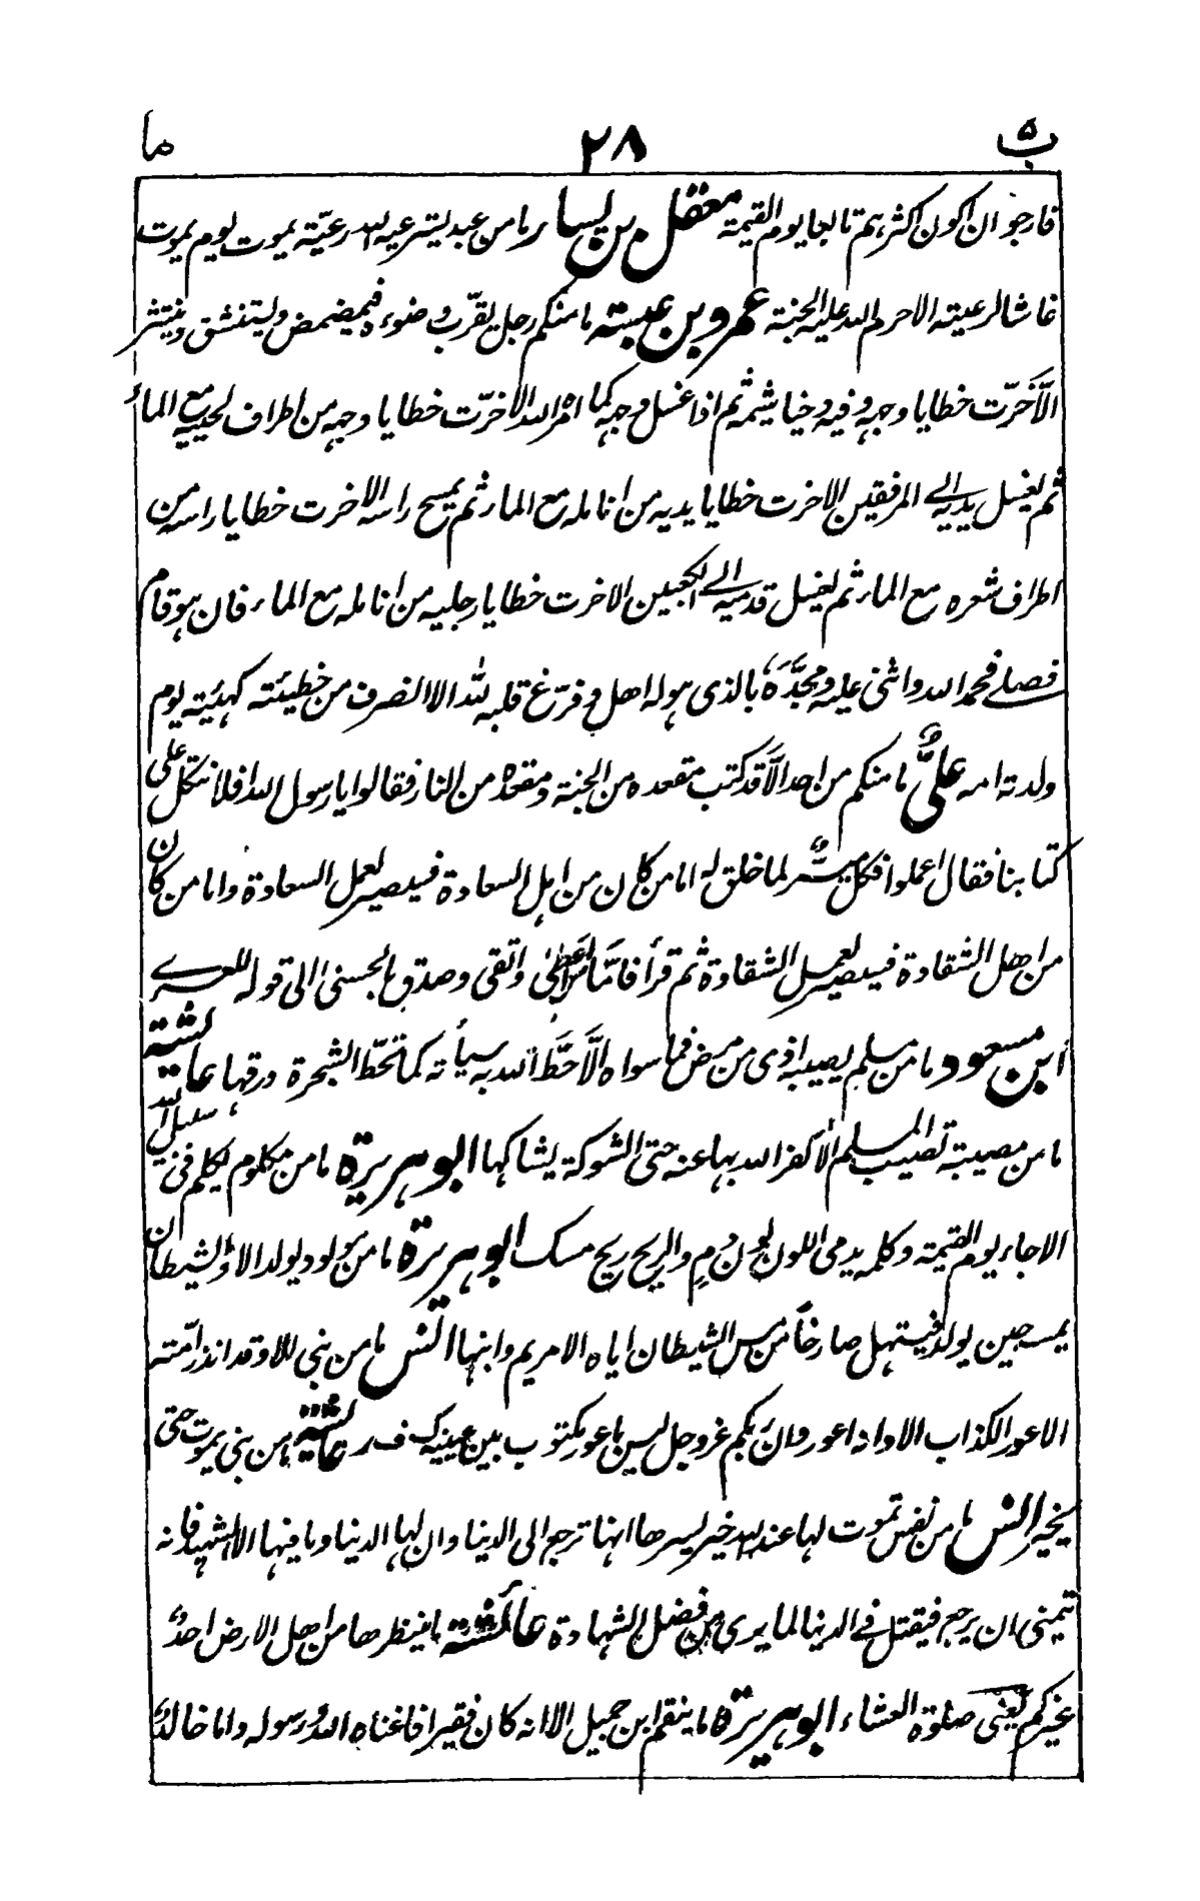 ب ٥ ٢٨ ما
فارجو ان اكون اكثرهم تابعا يوم القيمة معقل بن يسار ما من عبد يسترعيه الله رعيّة يموت يوم يموت
غاشا لرعيته الا حرم الله عليه الجنة عمرو بن عبسة ما منكم رجل يقرّب وضوءه فيمضمض ويستنشق وينتثر
الّا خَرّت خطايا وجهه وفيه وخياشيمه ثم اذا غسل وجهه كما امره الله الا خرّت خطايا وجهه من اطراف لحييه مع الماء
ثم يغسل يديه الى المرفقين الا خرت خطايا يديه من انامله مع الماء ثم يمسح راسه الا خرت خطايا راسه من
اطراف شعره مع الماء ثم يغسل قدميه الى الكعبين الا خرت خطايا رجليه من انامله مع الماء فان هو قام
فصلى فحمد الله واثنى عليه ومجّدَه بالذى هو له اهل وفرّغ قلبه لله الا انصرف من خطيئته كهيئته يوم
ولدته امه علىٌّ ما منكم من احد الّا قد كتب مقعده من الجنة ومقعده من النار فقالوا يا رسول الله افلا نتكل على
كتابنا فقال اعملوا فكل ميسّرٌ لما خلق له اما من كان من اهل السعادة فسيصير لعمل السعادة واما من كان
من اهل الشقادة فسيصير لعمل الشقادة ثم قرأ فامّا من اعطى واتقى وصدق بالحسنى الى قوله للعسرى
ابن مسعود ما من مسلم يصيبه اذى من مرض فما سواه الّا حَطَّ الله به سيأته كما تحطّ الشجرة ورقها عائشة
ما من مصيبة تصيب المسلم الا كفر الله بها عنه حتى الشوكة يشاكها ابو هريرة ما من مكلوم يكلم فى سبيل الله
الا جاء يوم القيمة وكلمه يدمى اللون لون دمٍ والريح ريح مسك ابو هريرة ما من مولود يولد الا والشيطان
يمسه حين يولد فيستهل صارخاً من مس الشيطان اياه الا مريم وابنها انس ما من نبى الا وقد انذر امّته
الاعور الكذاب الا وانه اعور وان ربكم عزوجل ليس باعور مكتوب بين عينيه ك ف ر عائشة ما من نبى يموت حتى
يخير انس ما من نفس تموت لها عند الله خير يسرها انها ترجع الى الدنيا وان لها الدنيا وما فيها الا الشهيد فانه
يتمنى ان يرجع فيقتل فى الدنيا لما يرى من فضل الشهادة عائشة ما ينتظرها من اهل الارض احدٌ
غيركم يعنى صلوة العشاء ابو هريرة ما ينقم ابن جميل الا انه كان فقيرا فاغناه الله ورسوله واما خالد